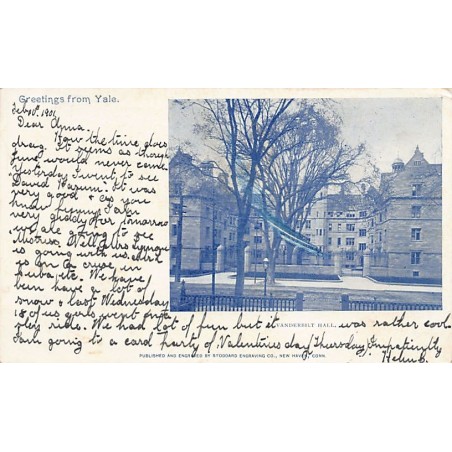 Greetings from Yale.
Feb 10th, 1901
Dear Alma.
How the time does
drag. It seems as though
June would never come.
Yesterday I went to see
David Harum. It was
very good & as you
know funny. I am
very glad for tomorrow
we are going to see
Will
is going with us, while
is on a cruise in
We have
been have a lot of
snow & last Wednesday
18 of us girls went on a
sleigh ride. We had lots of fun but it was rather cool
I am going to a card party of Valentines day Thursday. Impatiently
Helen B.
VANDERBILT HALL,
PUBLISHED AND ENGRAVED BY STODDARD ENGRAVING CO., NEW HAVEN, CONN.